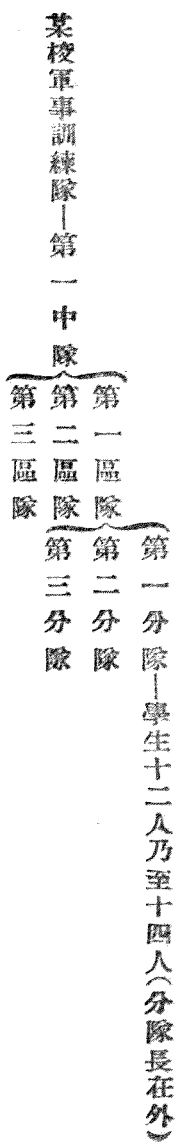 某校軍事訓練隊—第一中隊
第一區隊
第二區隊
第三區隊
第一分隊—學生十二人乃至十四人(分隊長在外)
第二分隊
第三分隊